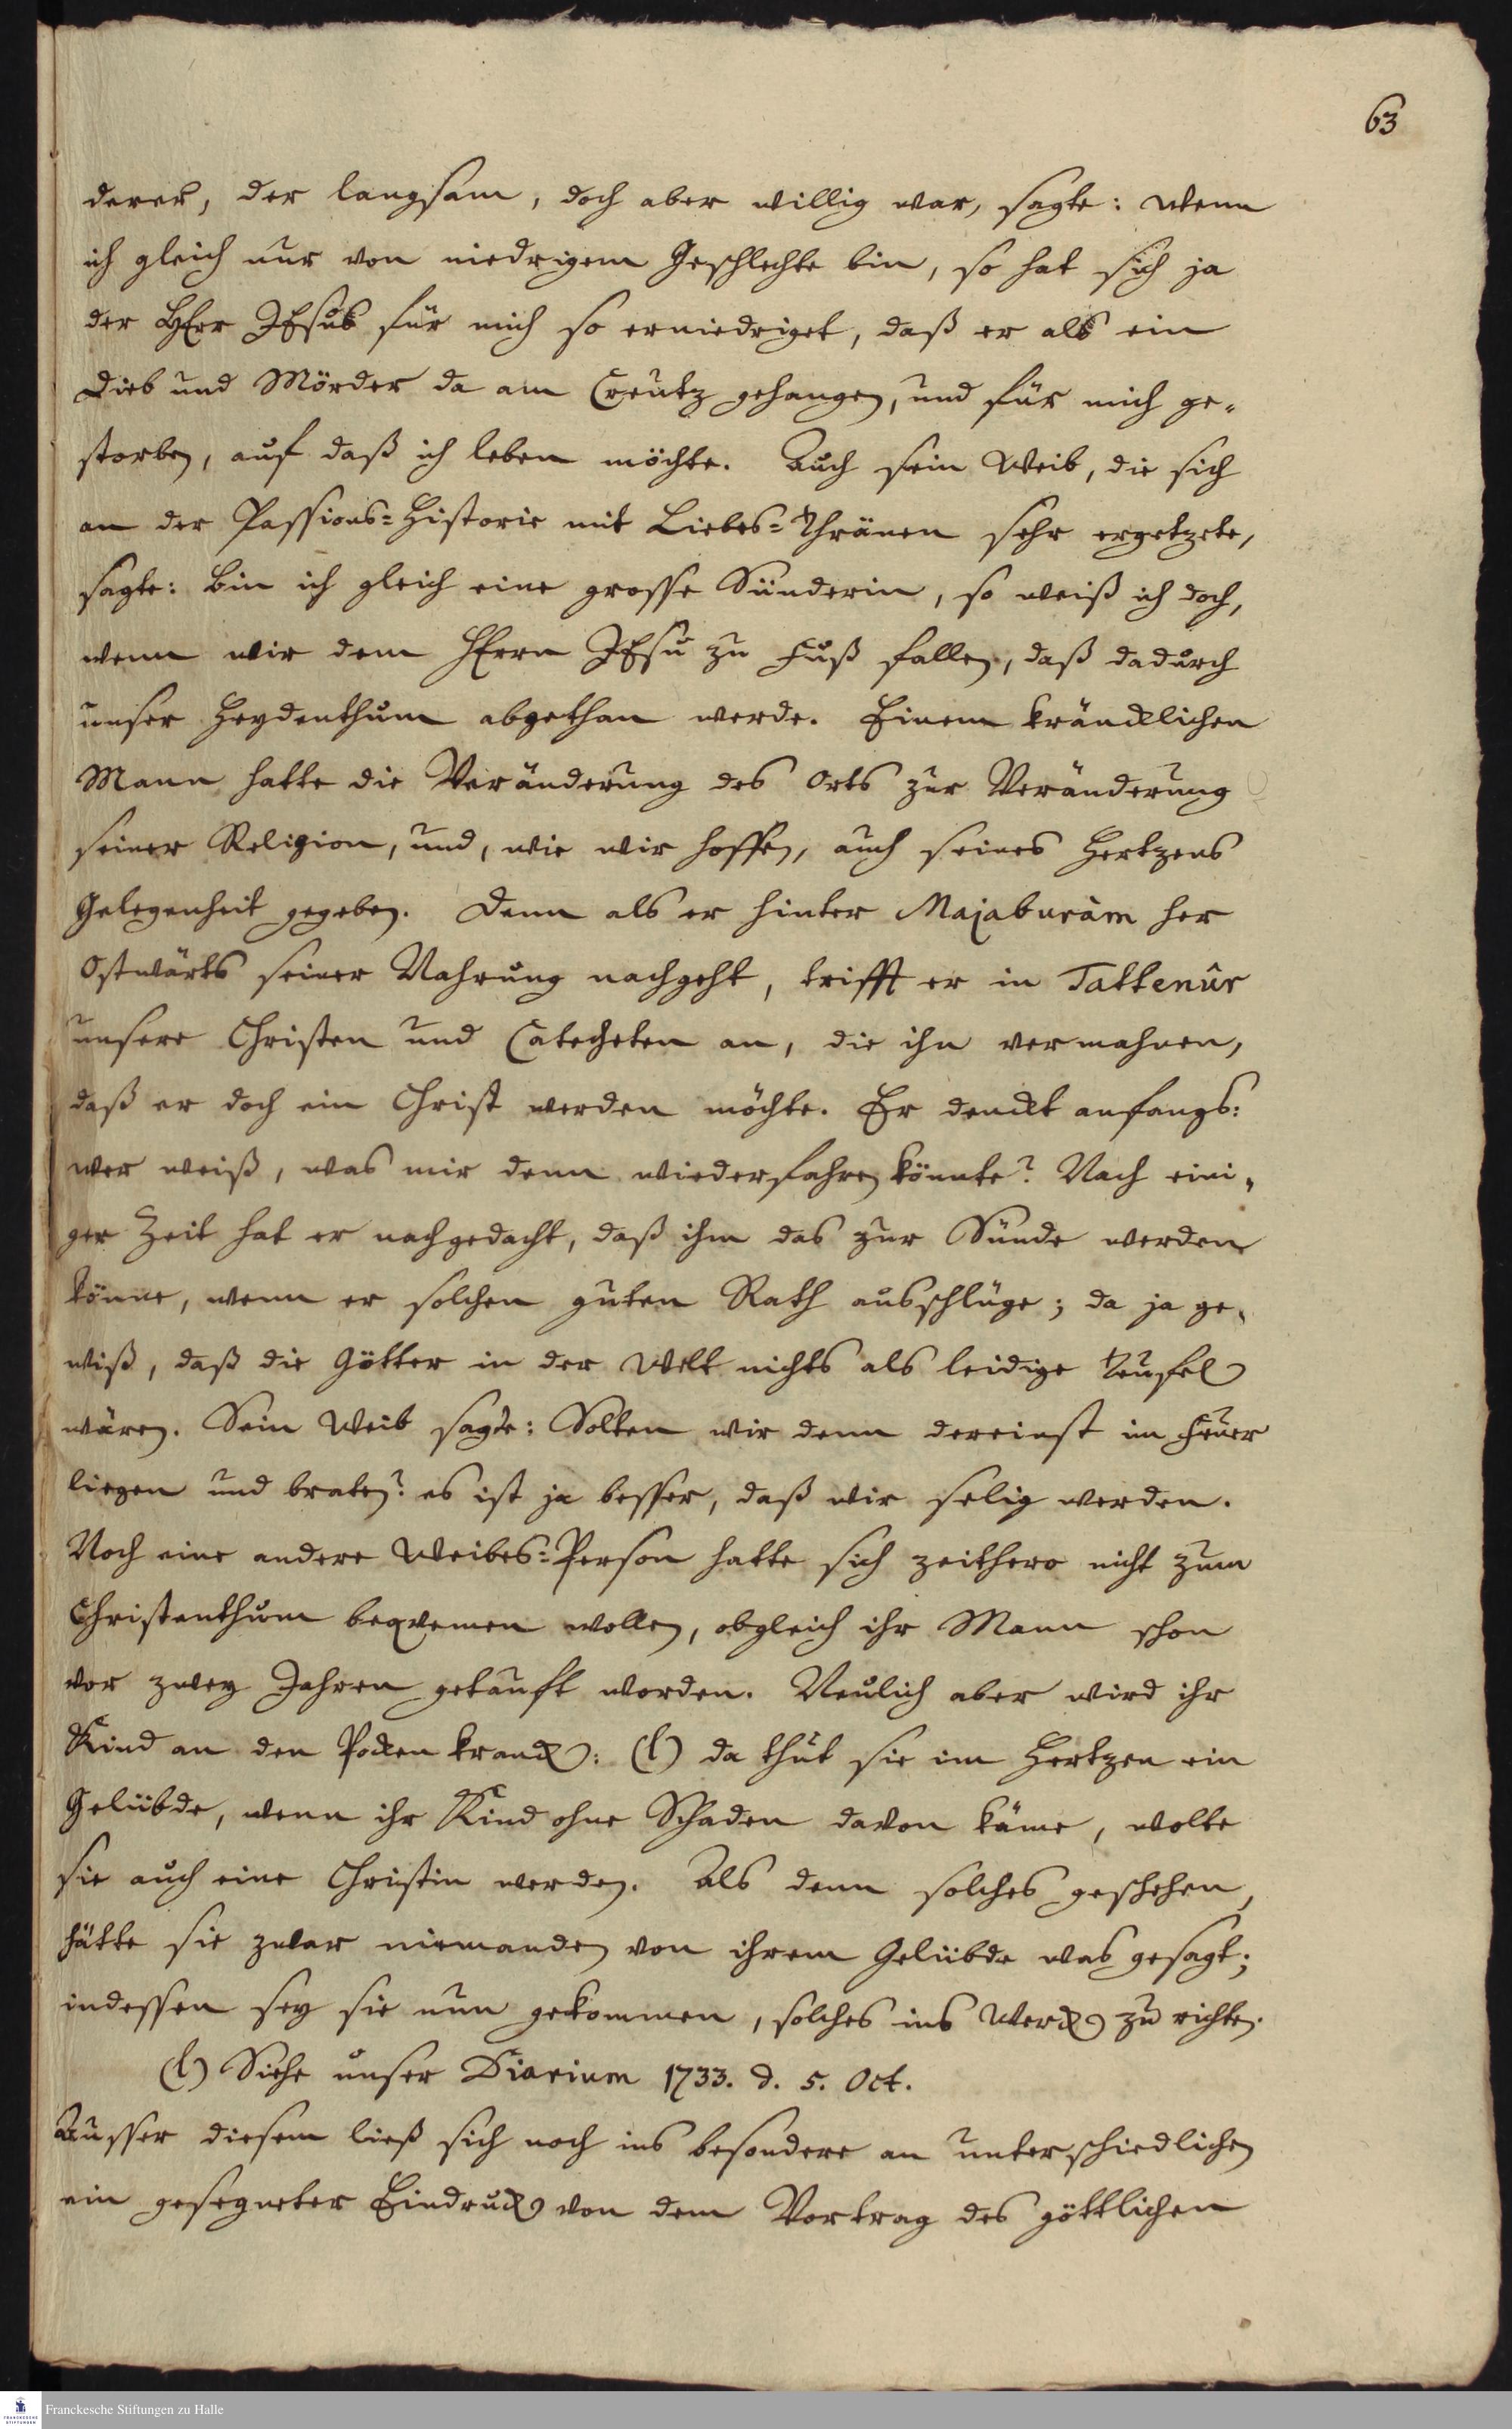 63
derer, der langsam, doch aber willig war, sagte: Wenn
ich gleich nur von niedrigem Geschlechte bin, so hat sich ja
der HErr JEsus für mich so erniedriget, daß er als ein
Dieb und Mörder da am Creutz gehangen, und für mich ge-
storben, auf daß ich leben möchte. Auch sein Weib, die sich
an der Passions-Historie mit Liebes-Thränen sehr ergetzete,
sagte: Bin ich gleich eine grosse Sünderin, so weiß ich doch,
wenn wir dem HErrn JEsu zu Fuß fallen, daß dadurch
unser Heydenthum abgethan werde. Einem kräncklichen
Mann hatte die Veränderung des Orts zur Veränderung
seiner Religion, und, wie wir hoffen, auch seines Hertzens
Gelegenheit gegeben. Denn als er hinter Majaburàm her
Ostwärts seiner Nahrung nachgeht, trifft er in Tattenûr
unsere Christen und Catecheten an, die ihn vermahnen,
daß er doch ein Christ werden möchte. Er denckt anfangs:
wer weiß, was mir denn wiederfahren könnte? Nach eini-
ger Zeit hat er nachgedacht, daß ihm das zur Sünde werden
könne, wenn er solchen guten Rath ausschlüge; da ja ge-
wiß, daß die Götter in der Welt nichts als leidige Teufel
wären. Sein Weib sagte: Solten wir denn dereinst im Feuer
liegen und braten? es ist ja besser, daß wir selig werden.
Noch eine andere Weibes-Person hatte sich zeithero nicht zum
Christenthum beqvemen wollen, obgleich ihr Mann schon
vor zwey Jahren getauft worden. Neulich aber wird ihr
Kind an den Pocken kranck: (l) da thut sie im Hertzen ein
Gelübde, wenn ihr Kind ohne Schaden davon käme, wolte
sie auch eine Christin werden. Als denn solches geschehen,
hätte sie zwar niemanden von ihrem Gelübde was gesagt;
indessen sey sie nun gekommen, solches ins Werck zu richten.
(l) Siehe unser Diarium 1733. d. 5. Oct.
Ausser diesem ließ sich noch ins besondere an unterschiedlichen
ein gesegneter Eindruck von dem Vortrag des göttlichen
Franckesche Stiftungen zu Halle